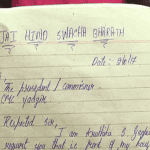 JAI HIND SWACHA BHARATH
Date: 9/6/17
The president / commissioner
CMC Yadgir
Respected Sir,
I am
request you that is front of my